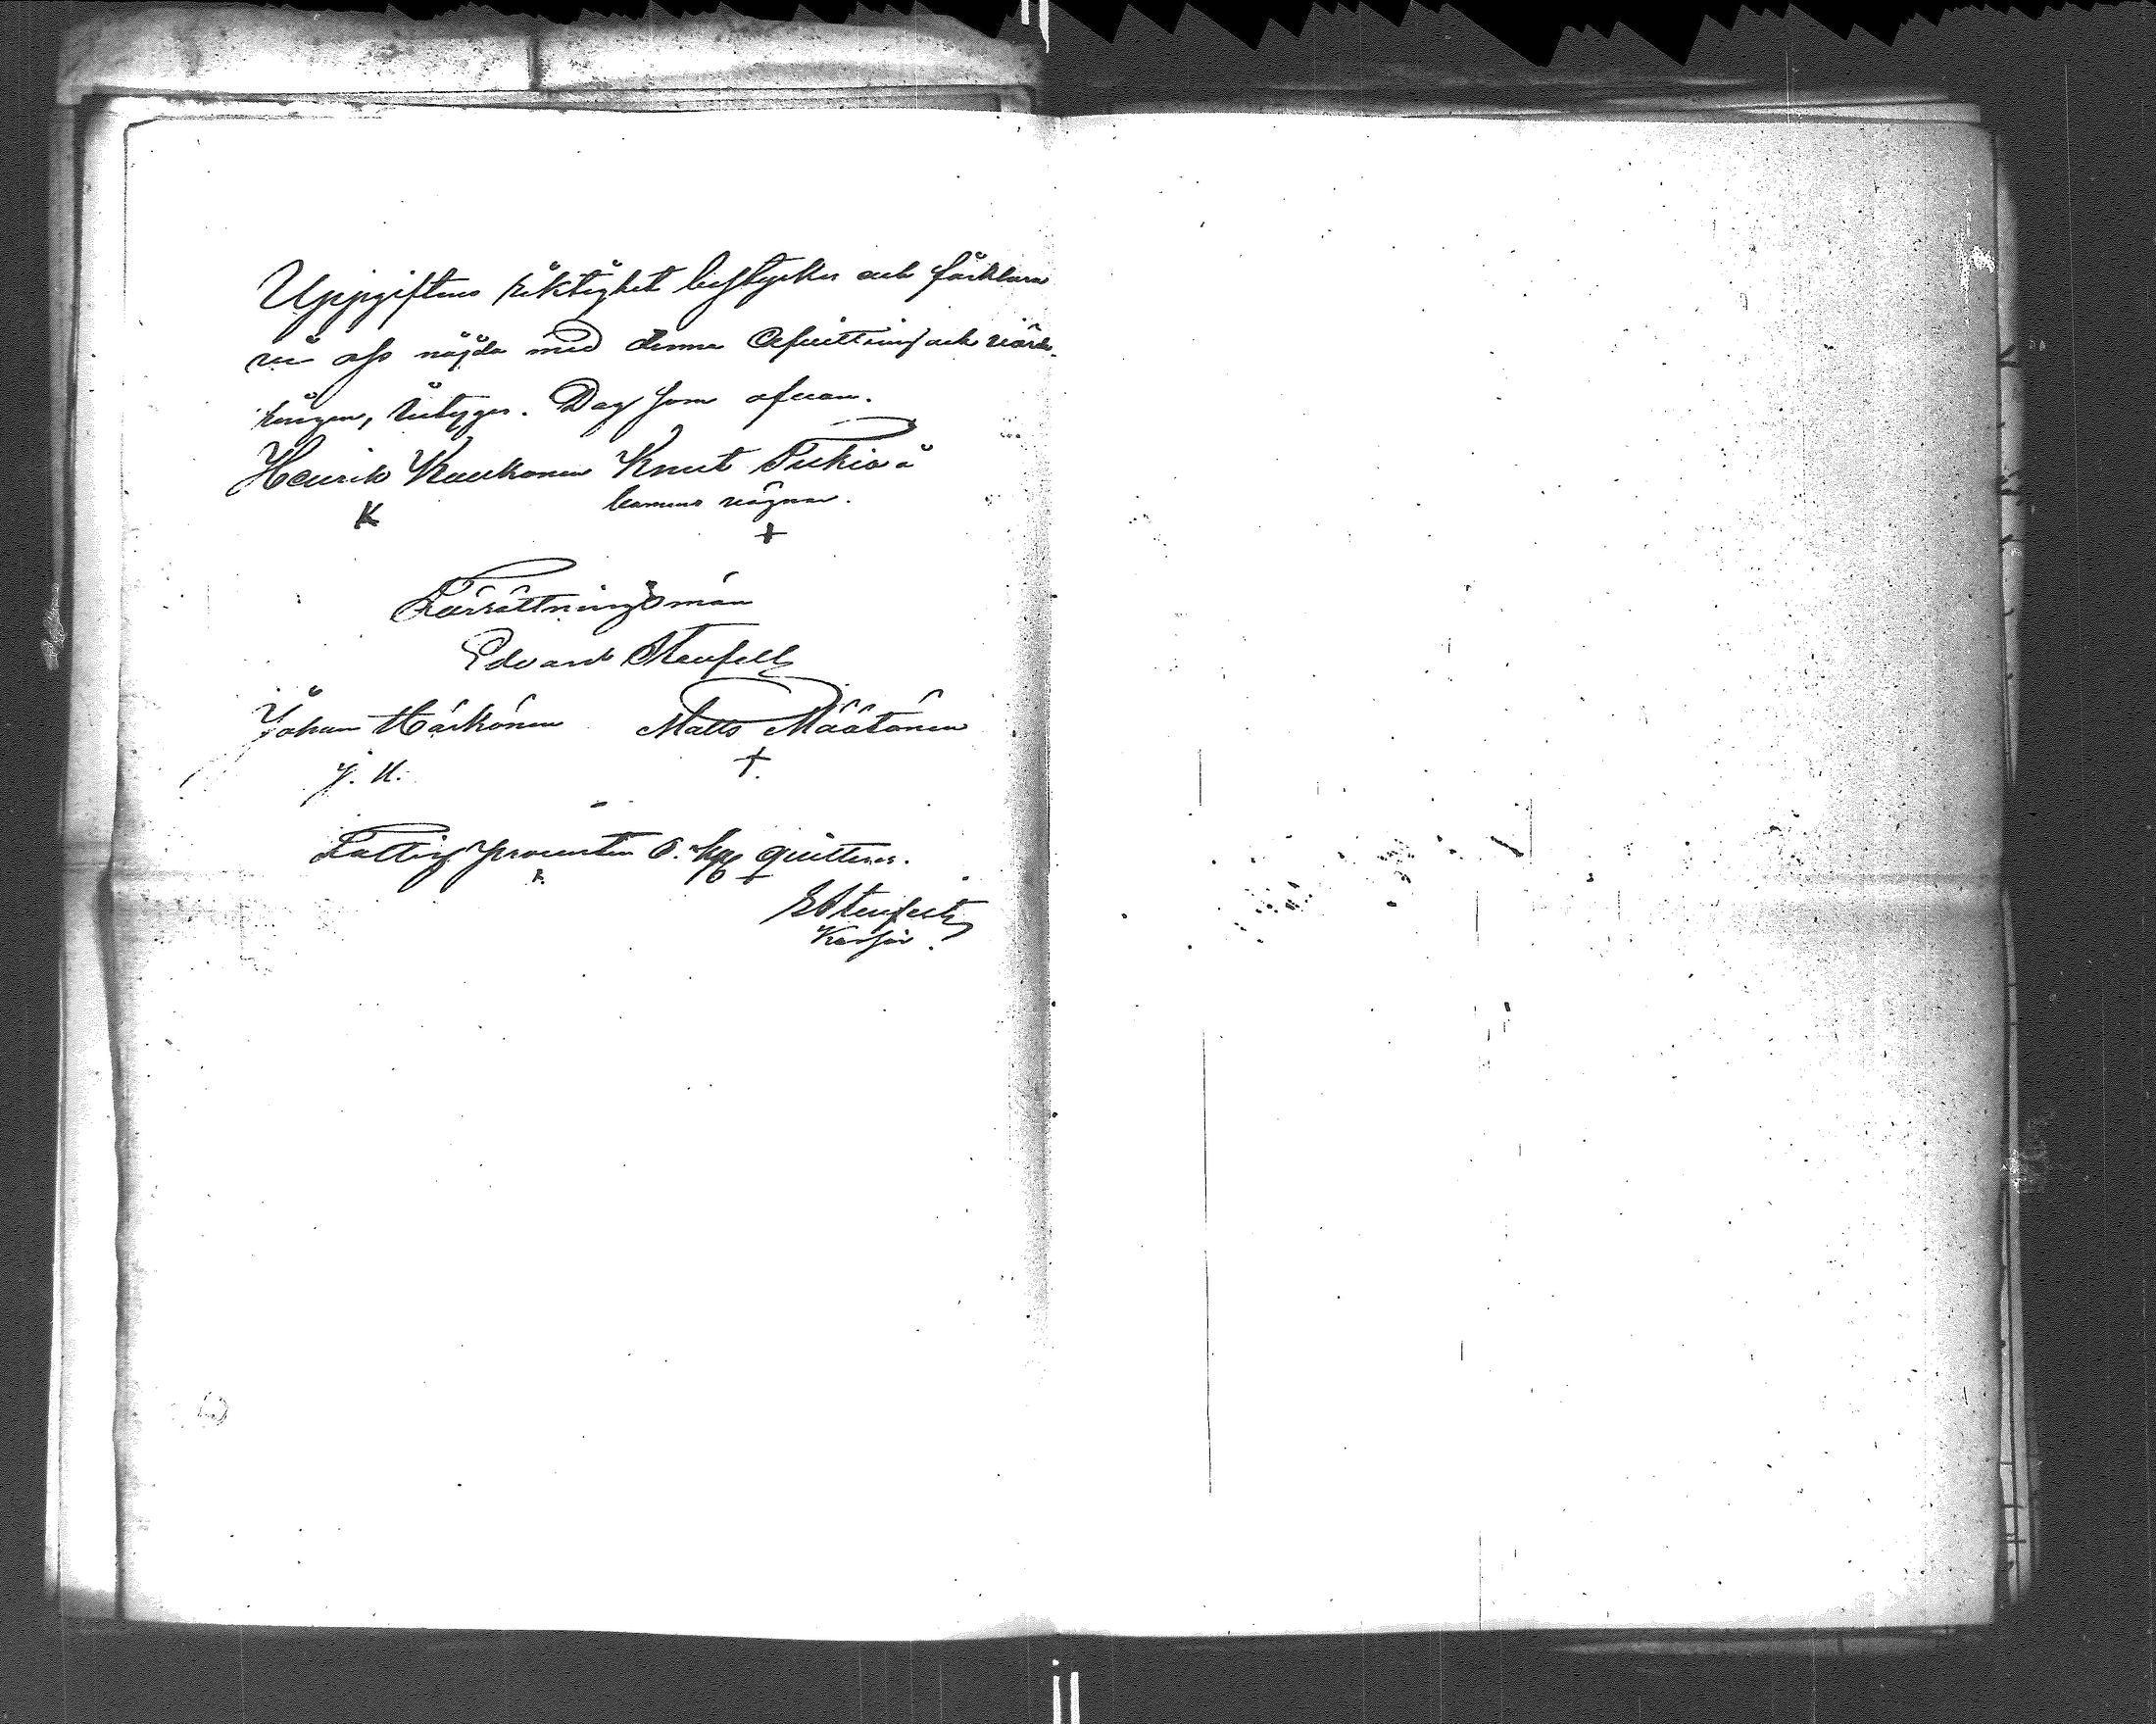 Uppgiftens riktighet bestyrkes och förklara
vi oss nöjda med denna afvittring och värde-
ringen, betyger. Dag som ofvan.
Henrik Kuukonen Knut
barnens vägnar.
K +
Förrättningsmän
Edvard Stenfelt
Johan Härkönen Matts Määtönen
J. H. +.
Fattig procenten 6. quitteras.
EStenfelt
Kassör.